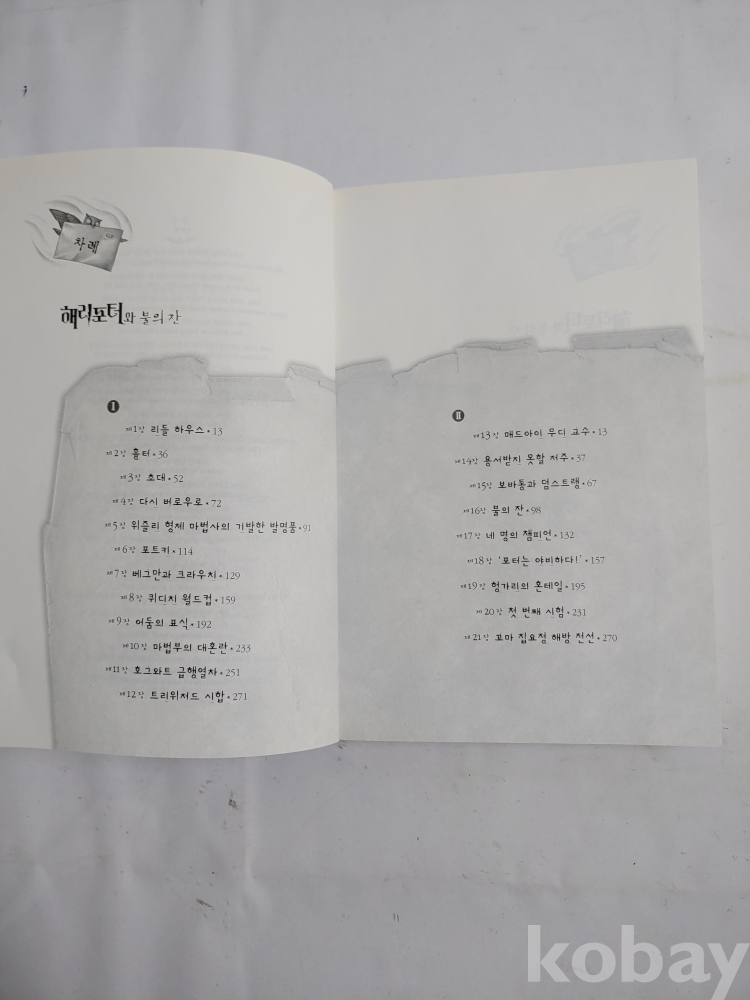 차례
해리포터와 불의 잔
I
제1장 리들 하우스 • 13
제2장 흉터 • 36
제3장 초대 • 52
제4장 다시 버로우로 • 72
제5장 위즐리 형제 마법사의 기발한 발명품 • 91
제6장 포트키 • 114
제7장 베그만과 크라우치 • 129
제8장 퀴디치 월드컵 • 159
제9장 어둠의 표식 • 192
제10장 마법부의 대혼란 • 233
제11장 호그와트 급행열차 • 251
제12장 트리위저드 시합 • 271
II
제13장 매드아이 무디 교수 • 13
제14장 용서받지 못할 저주 • 37
제15장 보바통과 덤스트랭 • 67
제16장 불의 잔 • 98
제17장 네 명의 챔피언 • 132
제18장 ‘포터는 야비하다!’ • 157
제19장 헝가리의 혼테일 • 195
제20장 첫 번째 시험 • 231
제21장 꼬마 집요정 해방 전선 • 270
kobay